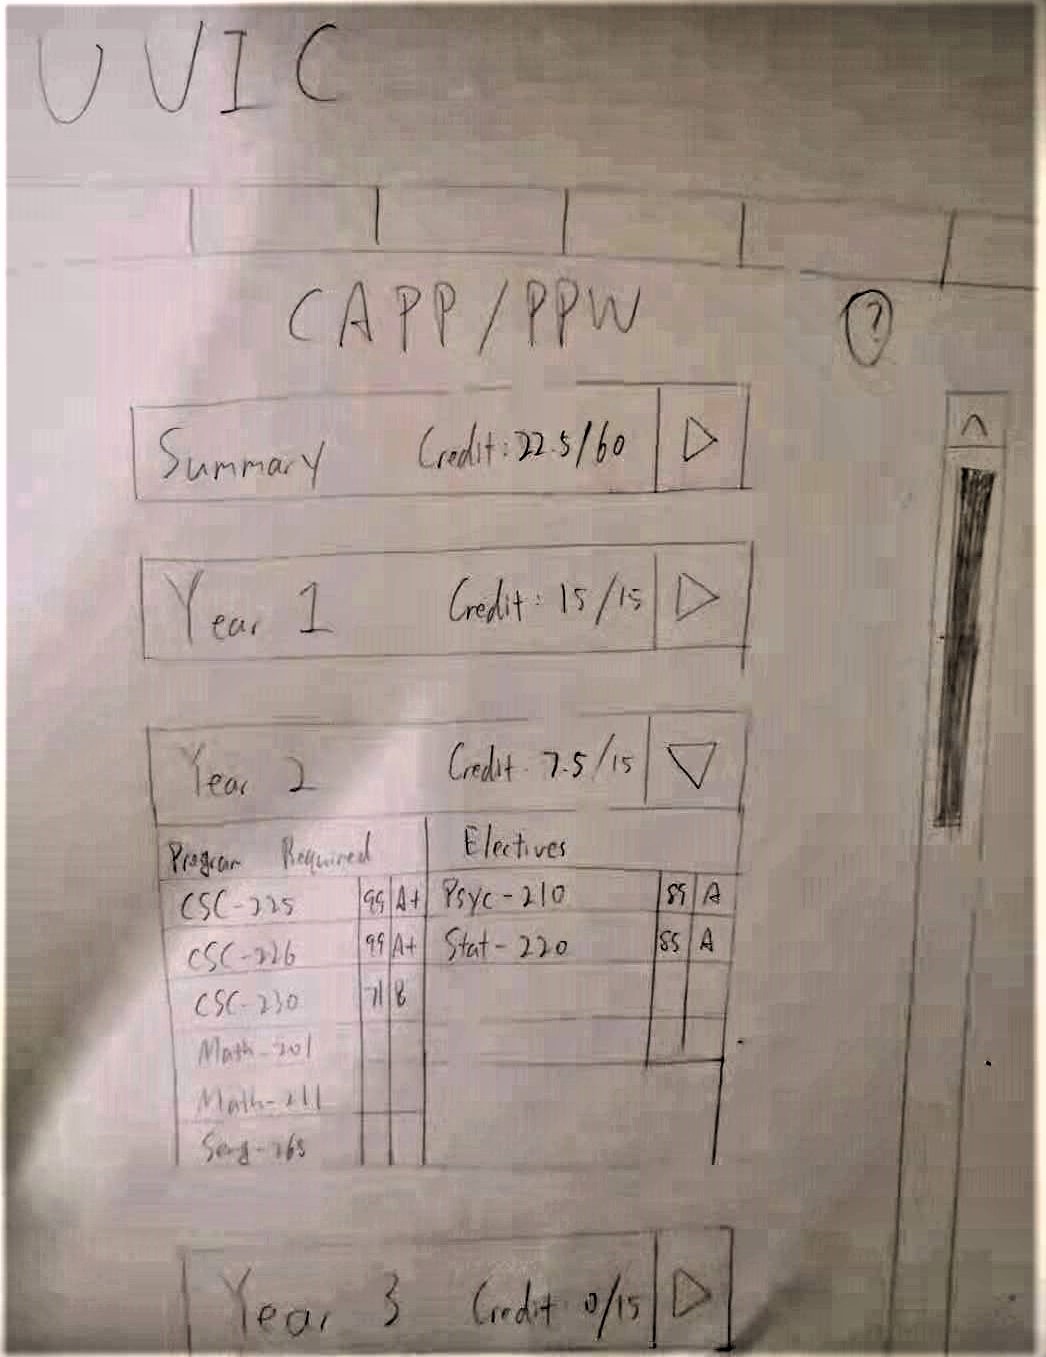 UVIC
CAPP/PPW ?
Summary Credit: 22.5/60
Year 1 Credit: 15/15
Year 2 Credit 7.5/15
Program Required Electives
CSC-225 99 A+ Psyc-210 85 A
CSC-226 99 A+ Stat-220 85 A
CSC-230 71 B
Math-201
Math-211
Seng-265
Year 3 Credit 0/15